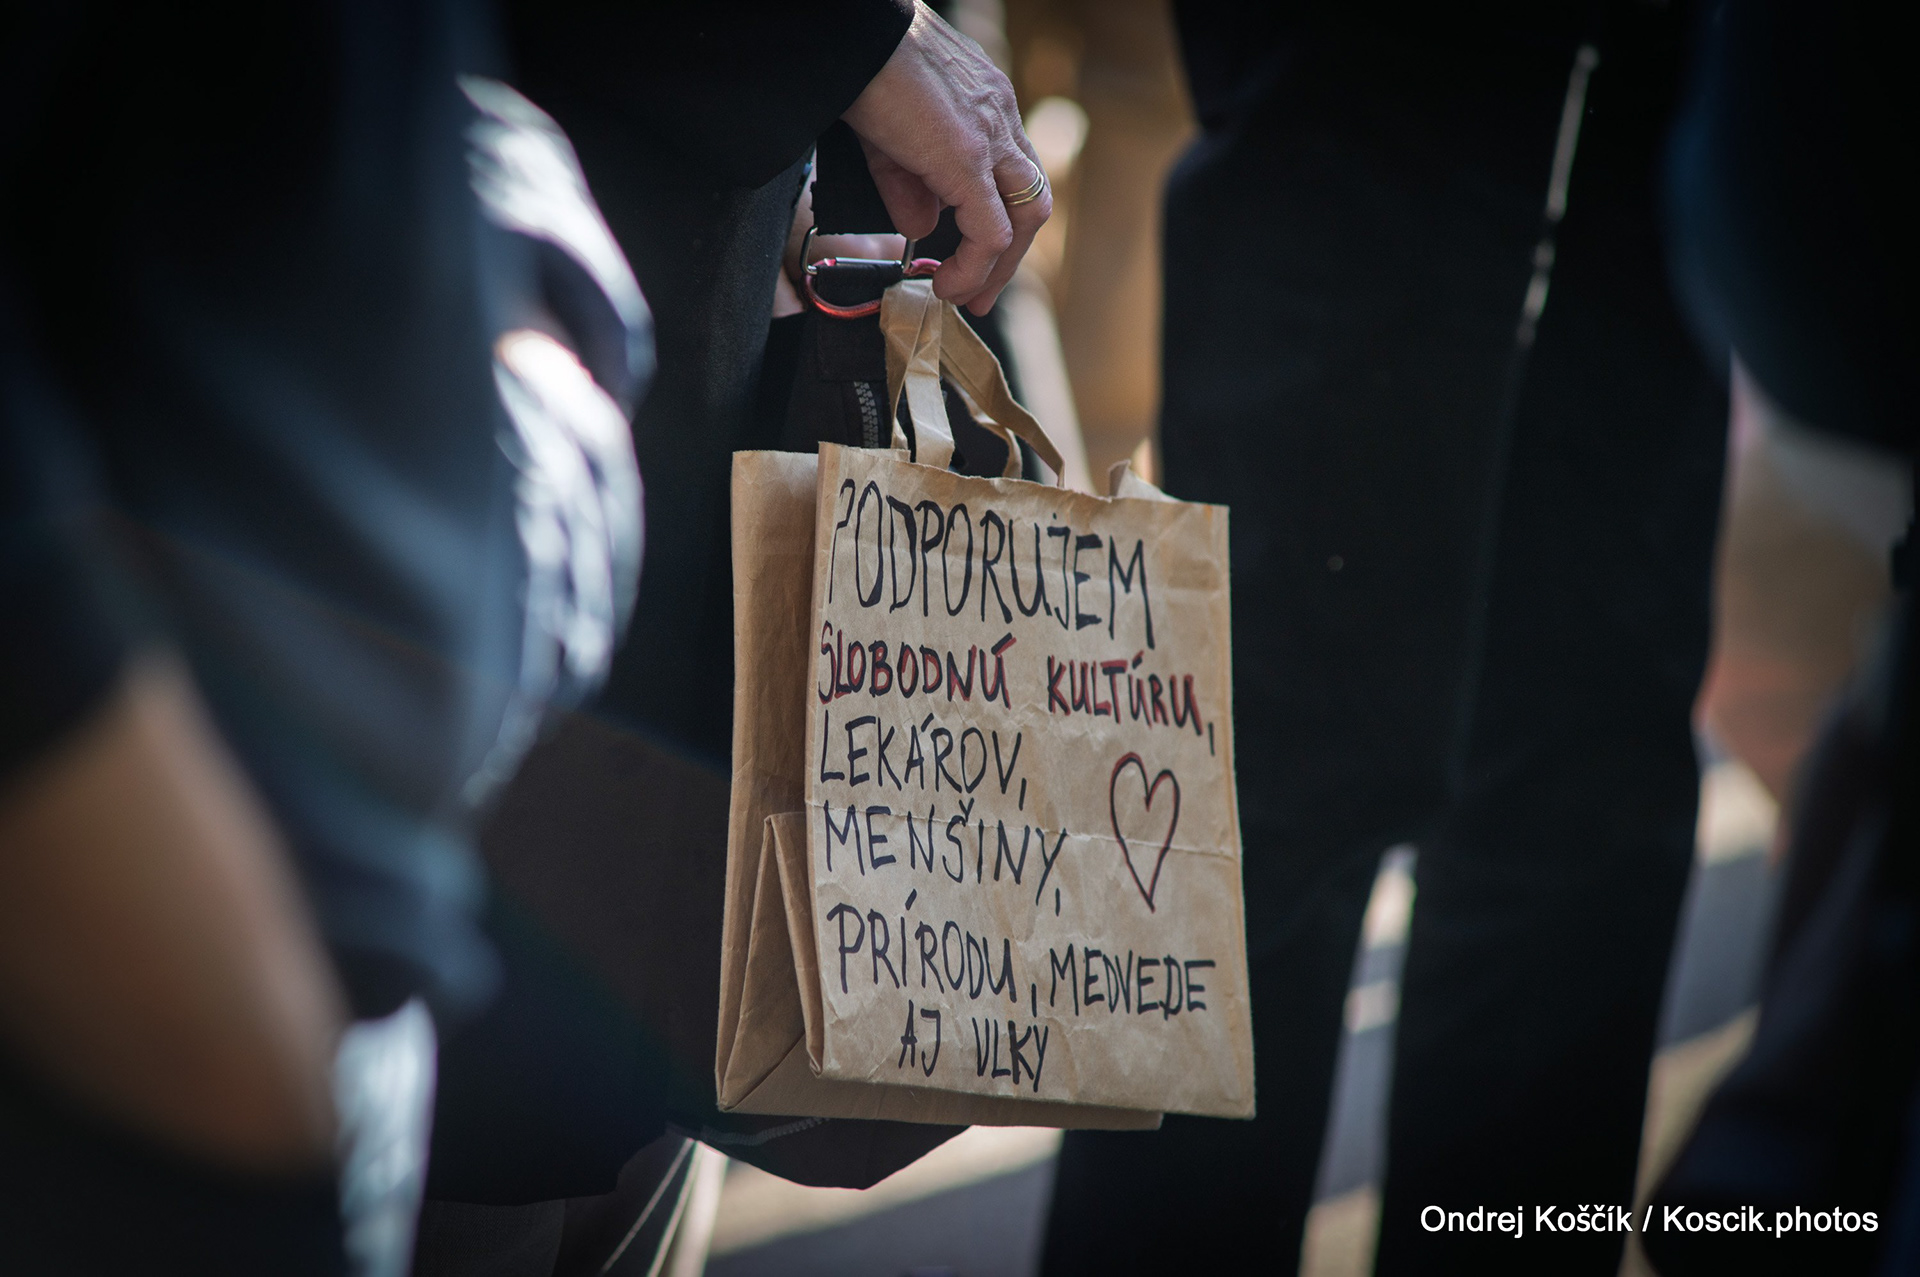 PODPORUJEM
SLOBODNÚ KULTÚRU,
LEKÁROV,
MENŠINY,
PRÍRODU, MEDVEDE
AJ VLKY
Ondrej Koščík / Koscik.photos